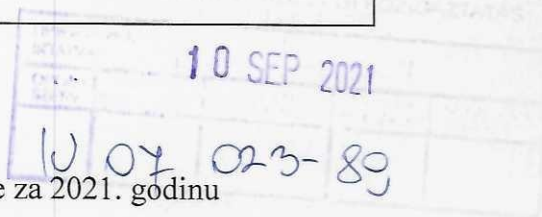 10 SEP 2021
IV 07 023-89
e za 2021. godinu